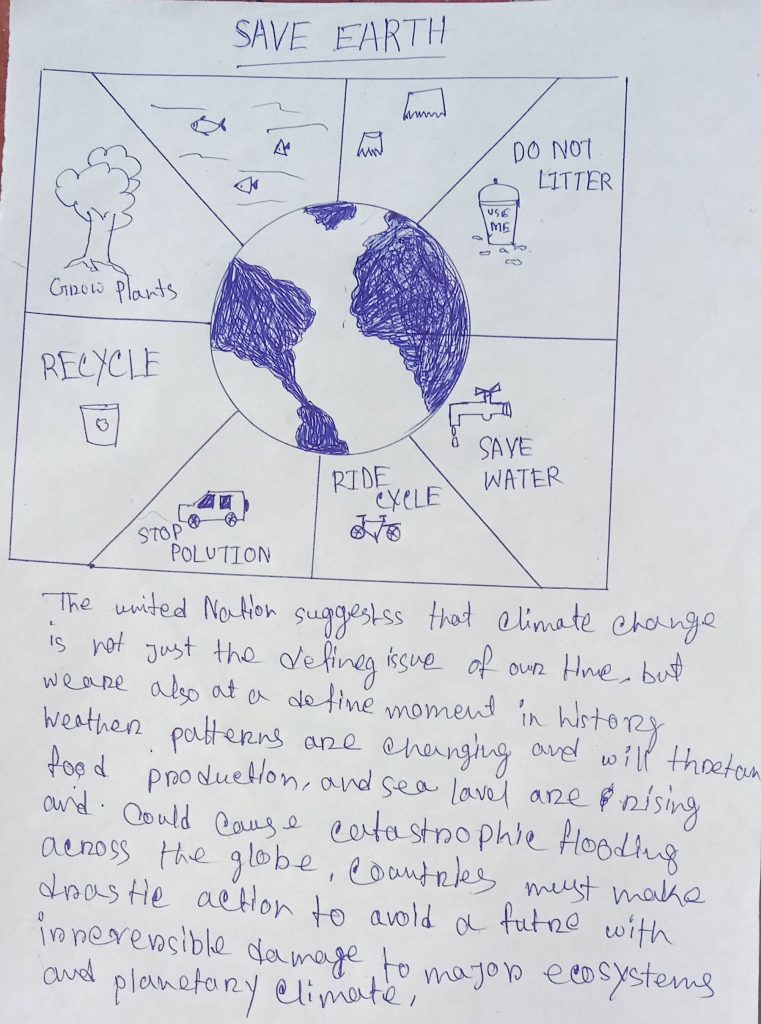 SAVE EARTH
DO NOT
LITTER
USE
ME
Grow Plants
RECYCLE
SAVE
WATER
RIDE
CYCLE
STOP
POLUTION
The united Nation suggestss that climate change
is not just the defineg issue of our time, but
weare also at a define moment in history
Weather patterns are changing and will thretan
food production, and sea lavel are rising
and. Could cause catastrophic flooding
across the globe, Countries must make
drastic action to avoid a futre with
irreversible damage to major ecosystems
and planetary climate,